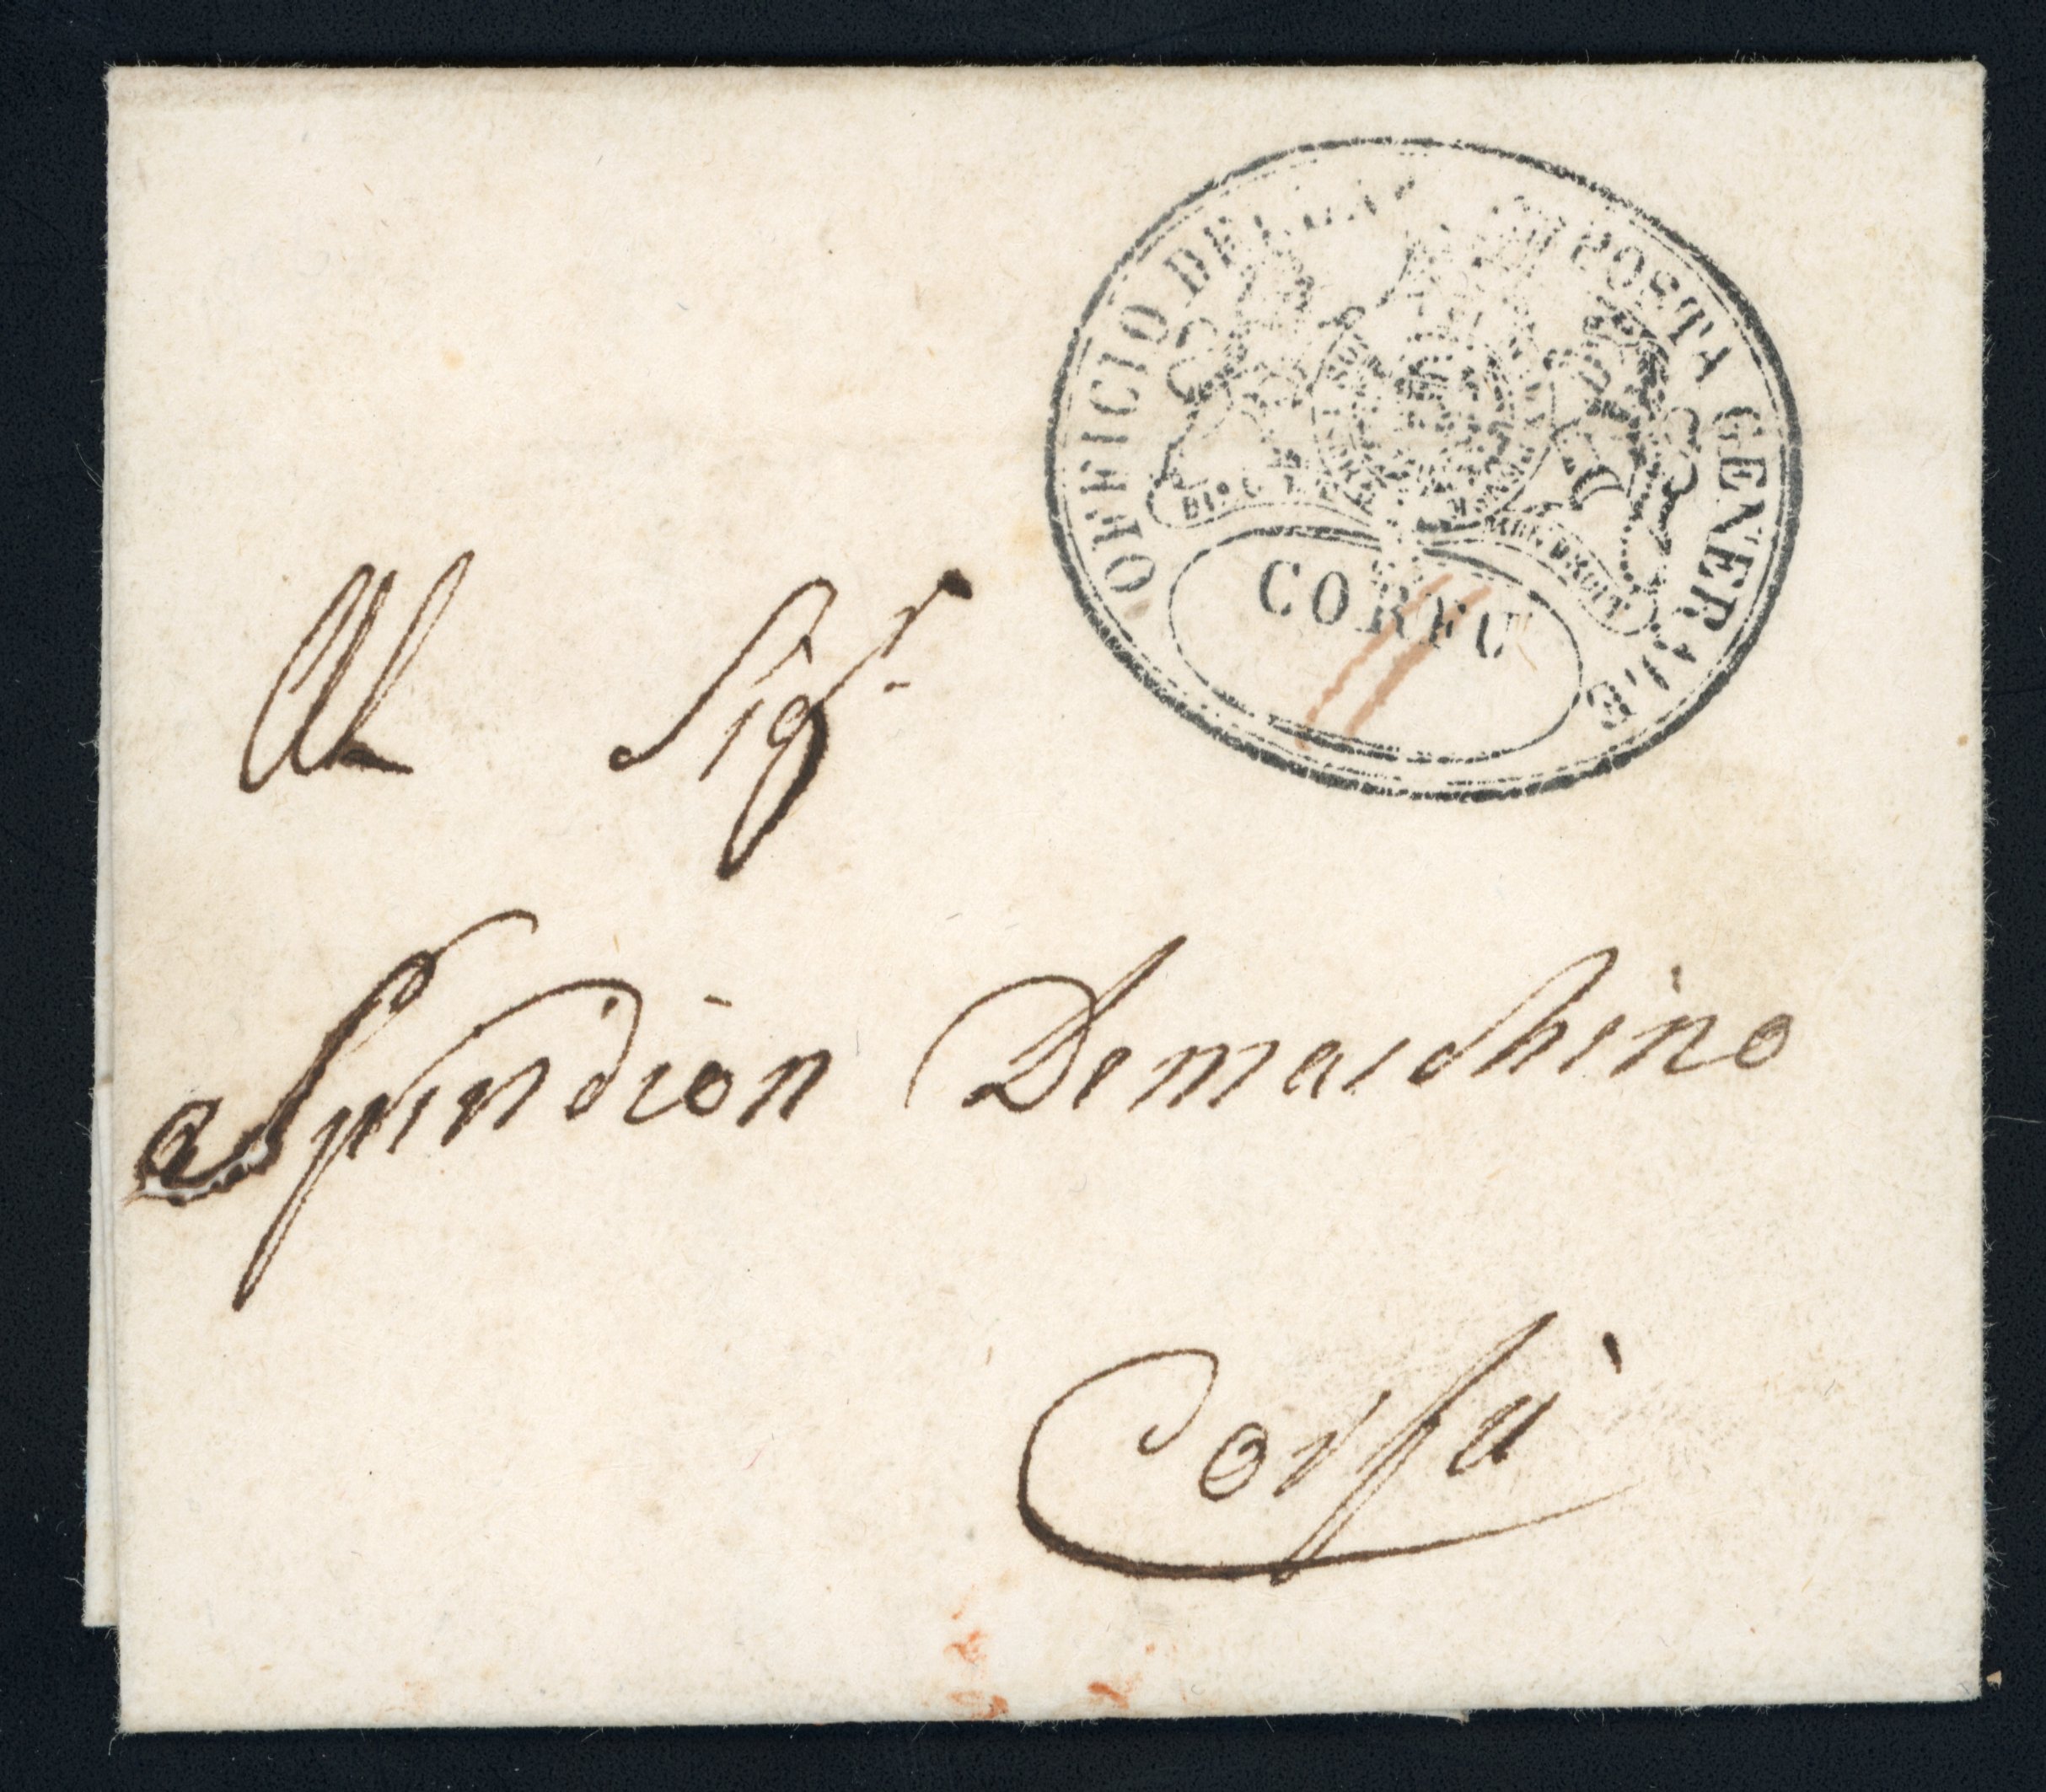 OFFICIO DELLA POSTA GENERALE
CORFU
Al Sigr.
Spiridion Damaschino
Corfù